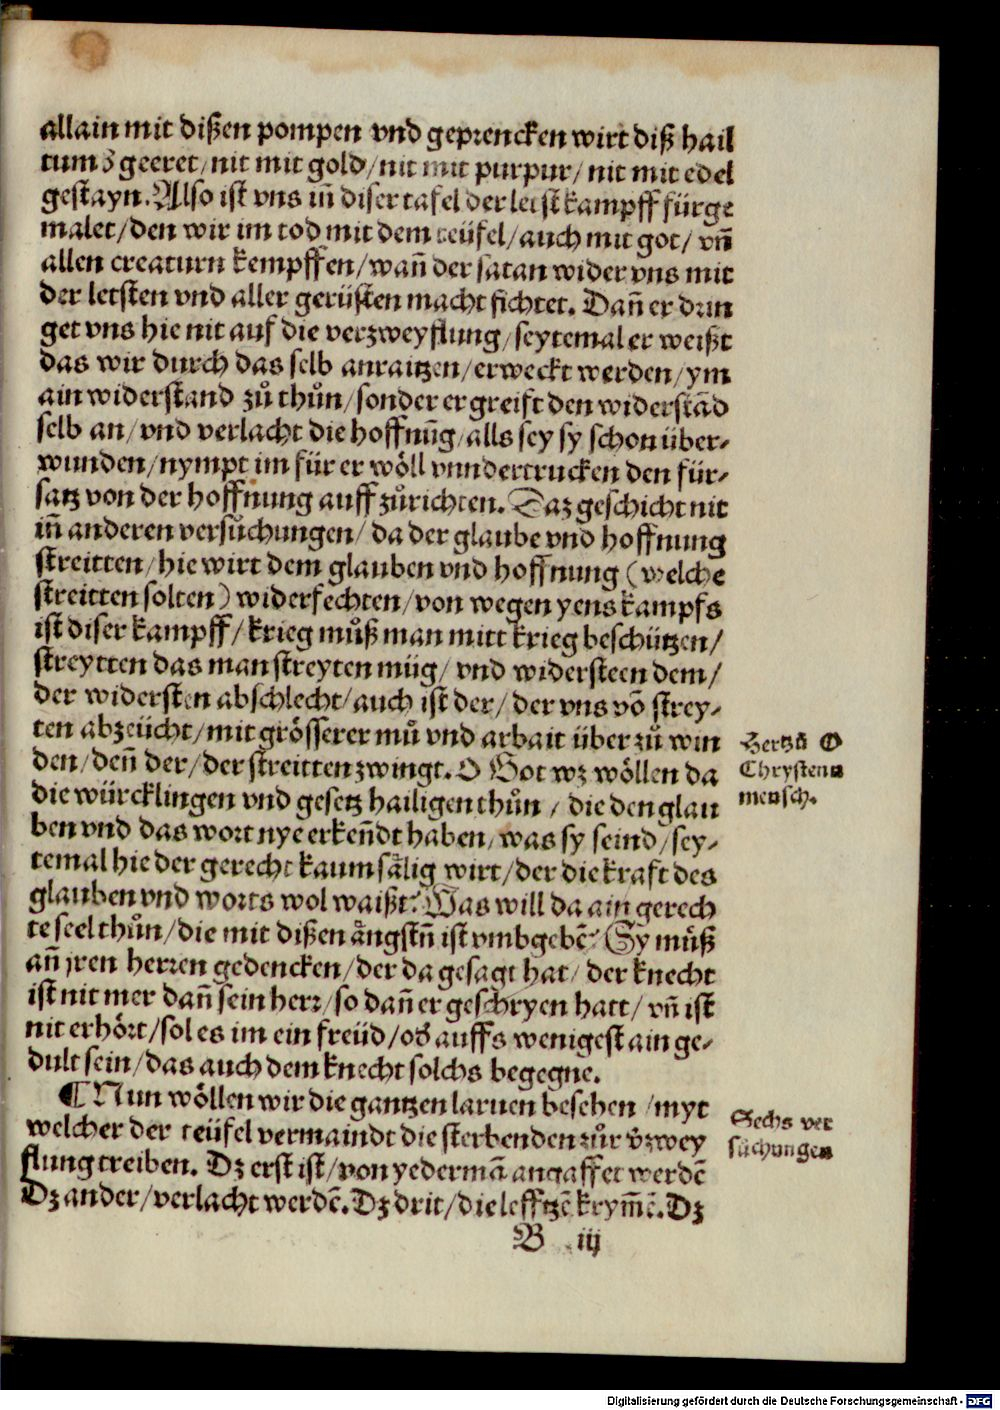 allain mit dißen pompen vnd geprencken wirt diß hail
tumb geeret/nit mit gold/nit mit purpur/nit mit edel
gestayn. Also ist vns iñ diser tafel der letst kampff fürge
malet/den wir im tod mit dem teüfel/auch mit got/vñ
allen creaturn kempffen/wañ der satan wider vns mit
der letsten vnd aller gerüsten macht fichtet. Dañ er drin
get vns hie nit auf die verzweyflung/seytemal er weißt
das wir durch das selb anraitzen/erweckt werden/ym
ain widerstand zů thůn/sonder er greift den widerstãd
selb an/vnd verlacht die hoffnũg/alls sey sy schon über-
wunden/nympt im für er wöll vnndertrucken den für-
satz von der hoffnung auff zůrichten. Daz geschicht nit
iñ anderen versůchungen/da der glaube vnd hoffnung
streitten/hie wirt dem glauben vnd hoffnung (welche
streitten solten) widerfechten/von wegen yens kampfs
ist diser kampff/krieg můß man mitt krieg beschützen/
streytten das man streyten müg/vnd widersteen dem/
der widersten abschlecht/auch ist der/der vns võ strey-
ten abzeücht/mit grösserer mů vnd arbait über zů win
den/deñ der/der streitten zwingt. O Got wz wöllen da
die würcklingen vnd gesetz hailigen thůn/die den glau
ben vnd das wort nye erkeñdt haben/was sy seind/sey-
temal hie der gerecht kaum sälig wirt/der die kraft des
glauben vnd worts wol waißt? Was will da ain gerech
te seel thůn/die mit dißen ängstñ ist vmbgebẽ? Sy můß
añ jren herren gedencken/der da gesagt hat/der knecht
ist nit mer dañ sein herr/so dañ er geschryen hatt/vñ ist
nit erhört/sol es im ein freüd/oď auffs wenigest ain ge-
dult sein/das auch dem knecht solchs begegne.
¶ Nun wöllen wir die gantzen laruen besehen/myt
welcher der teüfel vermaindt die sterbenden zůr v̉zwey
flung treiben. Dz erst ist/von yedermã angaffet werdẽ
Dz ander/verlacht werdẽ. Dz drit/die lefftzẽ krym̃ẽ. Dz
B iij
Hertzů O
Chrysten
mensch.
Sechs ver
sůchungen
Digitalisierung gefördert durch die Deutsche Forschungsgemeinschaft - DFG